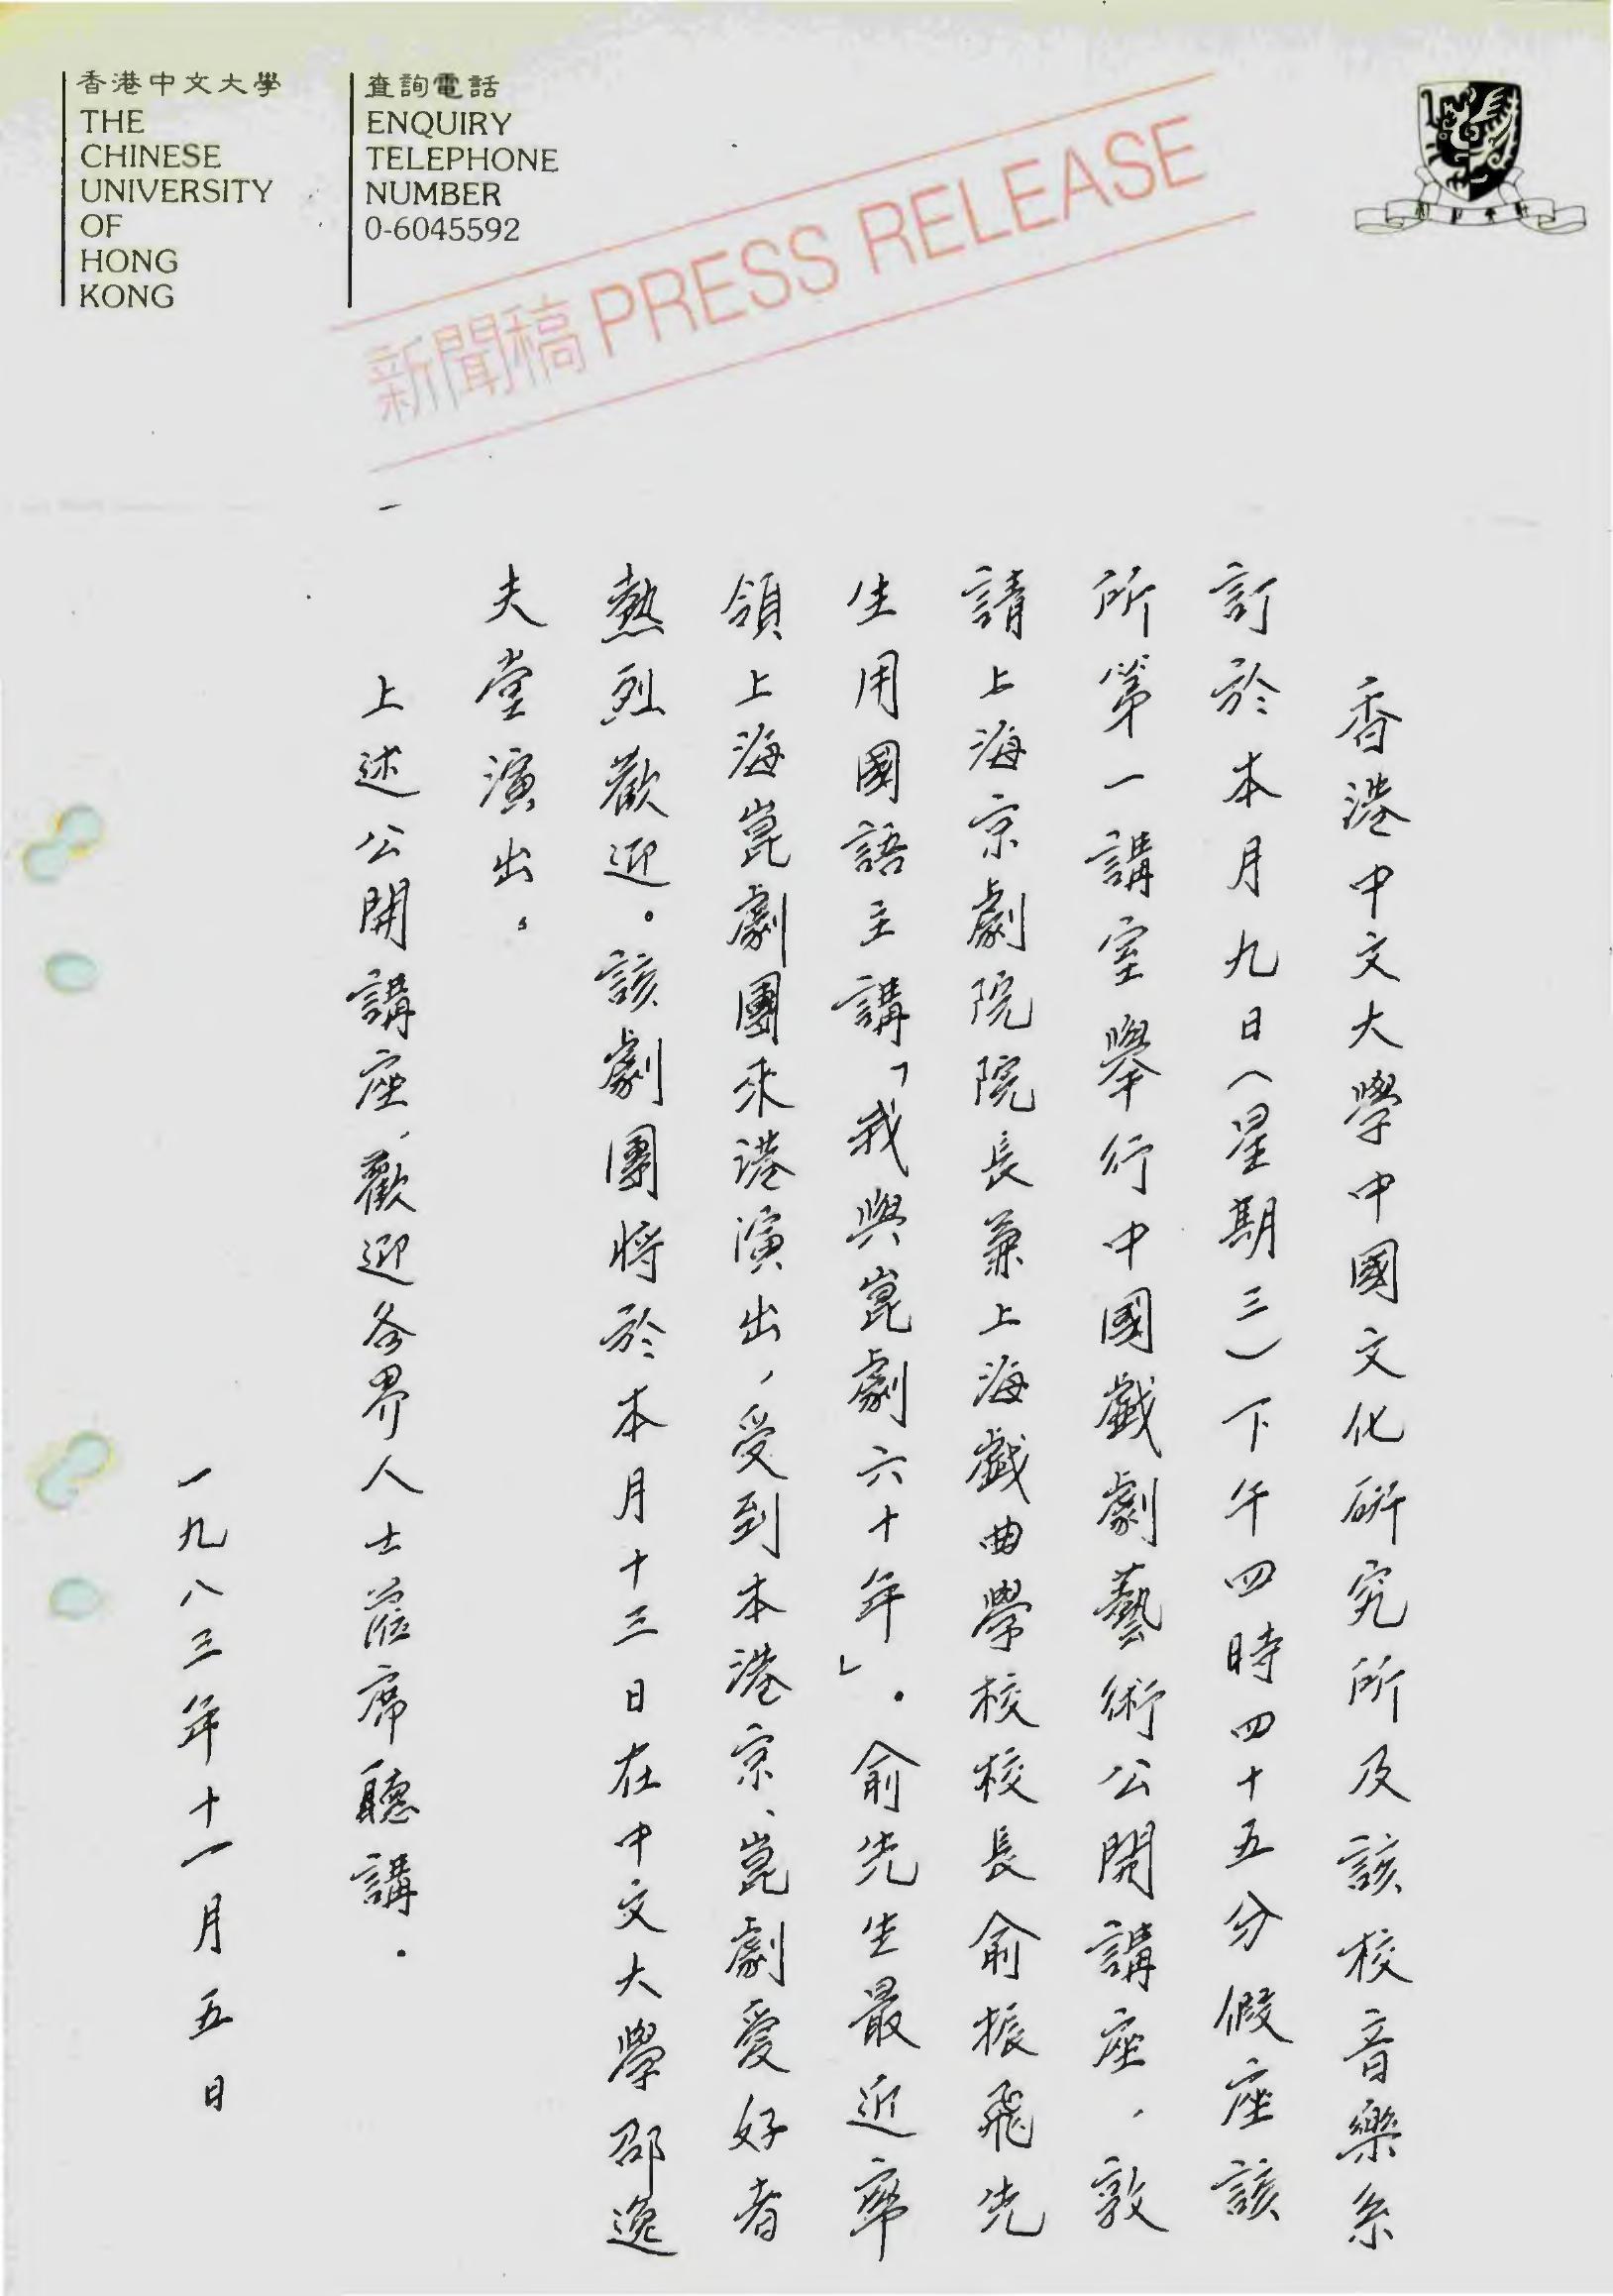 香港中文大學
THE
CHINESE
UNIVERSITY
OF
HONG
KONG
查詢電話
ENQUIRY
TELEPHONE
NUMBER
0-6045592
新聞稿 PRESS RELEASE
香港中文大學中國文化研究所及該校音樂系
訂於本月九日(星期三)下午四時四十五分假座該
所第一講室舉行中國戲劇藝術公開講座,敦
請上海京劇院院長兼上海戲曲學校校長俞振飛先
生用國語主講「我與崑劇六十年」。俞先生最近率
領上海崑劇團來港演出,受到本港京、崑劇愛好者
熱烈歡迎。該劇團將於本月十三日在中文大學邵逸
夫堂演出。
上述公開講座,歡迎各界人士蒞席聽講。
一九八三年十一月五日